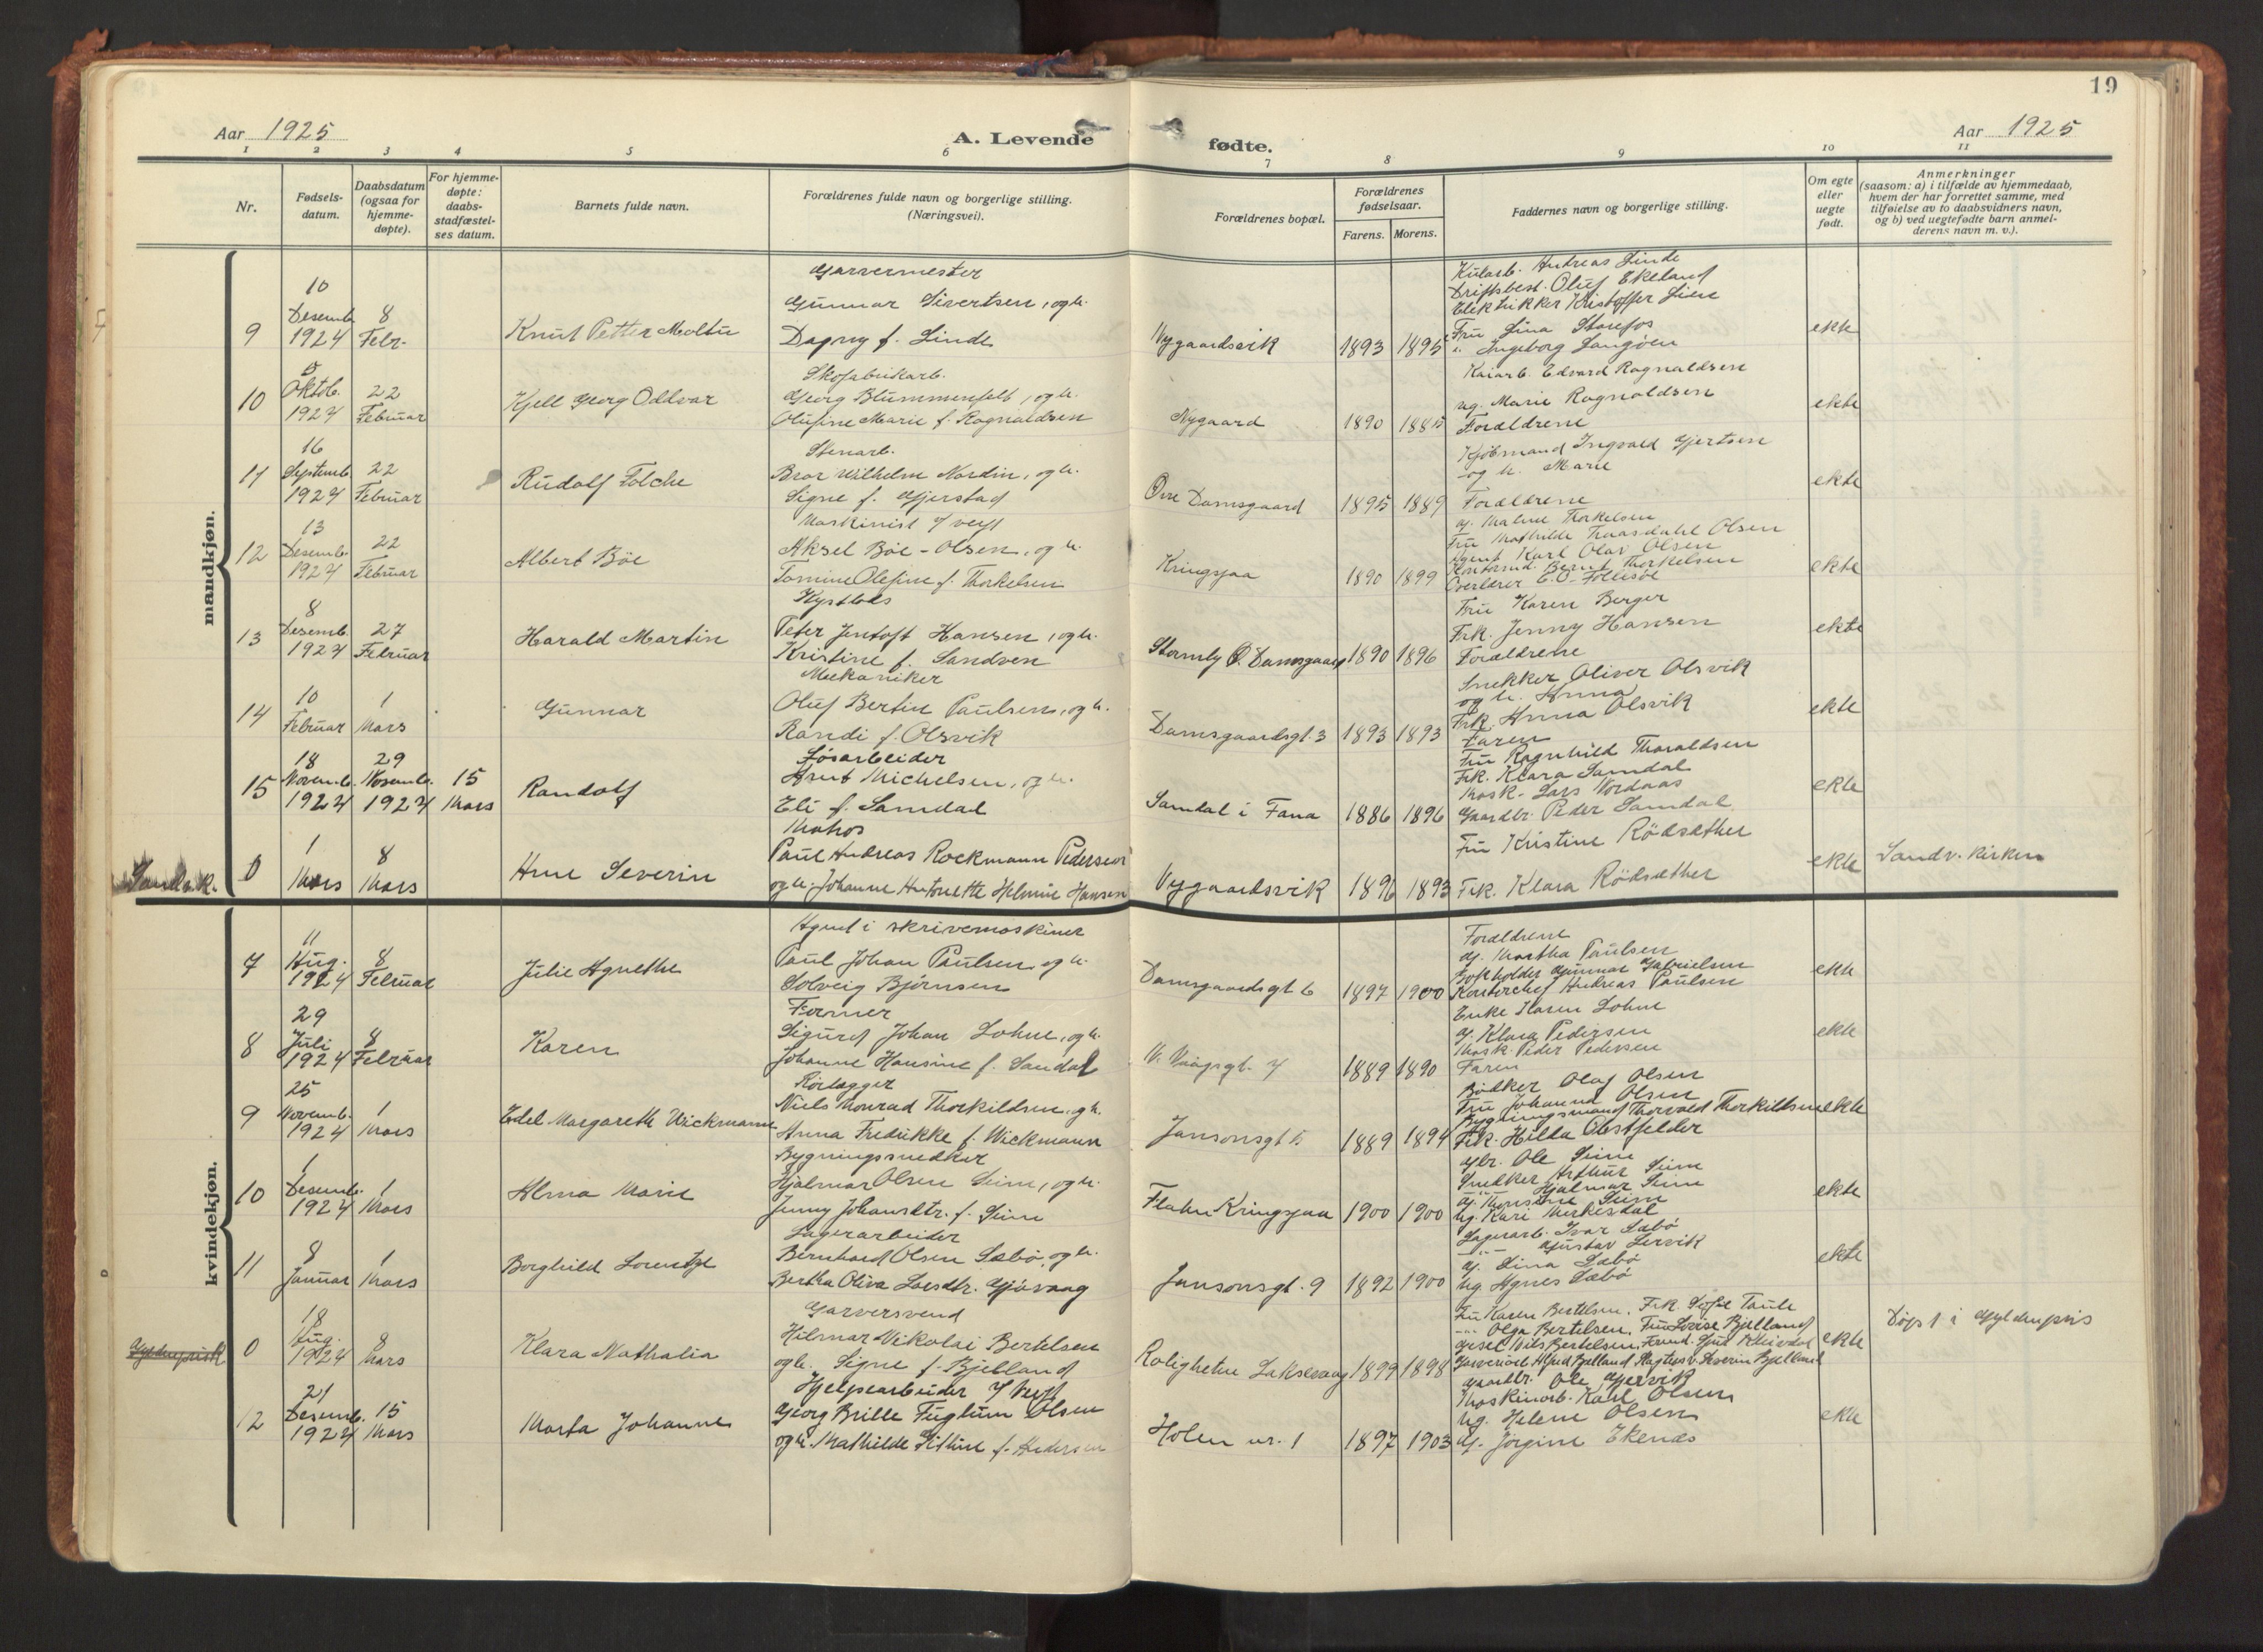 19
Aar 1925
A. Levende
fødte.
Aar 1925
1 2 3 4 5 6 7 8 9 10 11
Nr.
Fødsels-
datum.
Daabsdatum
(ogsaa for
hjemme-
døpte).
For hjemme-
døpte:
daabs-
stadfæstel-
ses datum.
Barnets fulde navn.
Forældrenes fulde navn og borgerlige stilling.
(Næringsvei).
Forældrenes bopæl.
Forældrenes
fødselsaar.
Farens. Morens.
Faddernes navn og borgerlige stilling.
Om egte
eller
uegte
født.
Anmerkninger
(saasom: a) i tilfælde av hjemmedaab,
hvem der har forrettet samme, med
tilføielse av to daabsvidners navn,
og b) ved uegtefødte barn anmel-
derens navn m. v.).
mandkjøn.
9
10
Desemb.
1924
8
Febr.
Knut Petter Moltu
Garvermester
Gunnar Sivertsen, og h.
Dagny f. Linde
Nygaardsvik
1893 1895
Kularb. Andreas Linde
Driftsbest. Oluf Ekeland
Elektrikker Kristoffer Lien
Fru Lina Storefos
" Ingeborg Langøen
ekte
10
5
Oktob.
1924
22
Februar
Kjell Georg Oddvar
Skofabrikarb.
Georg Blummenfelt, og h.
Olufine Marie f. Ragnaldsen
Nygaard
1890 1885
Kaiarb. Edvard Ragnaldsen
ug. Marie Ragnaldsen
Forældrene
ekte
11
16
Septemb.
1924
22
Februar
Rudolf Folche
Stenarb.
Bror Wilhelm Nordin, og h.
Signe f. Gjerstad
Øvre Damsgaard
1895 1889
Kjøbmand Ingvald Gjertsen
og h. Marie
Forældrene
ekte
12
13
Desemb.
1924
22
Februar
Albert Bøe
Maskinist
Aksel Bøe-Olsen, og h.
Tomine Olefine f. Thorkelsen
Kringsjaa
1890 1899
g. Malene Thorkelsen
Fru Mathilde Traasdahl Olsen
Agent Karl Olav Olsen
Bernt Thorkelsen
Overlærer E. O. Follesøe
ekte
13
8
Desemb.
1924
27
Februar
Harald Martin
Kystlods
Peter Jentoft Hansen, og h.
Kristine f. Sandven
Stormly Ø. Damsgaard
1890 1896
Fru Karen Berger
Frk. Jenny Hansen
Forældrene
ekte
14
10
Februar
1
Mars
Gunnar
Mekaniker
Oluf Bertin Paulsen, og h.
Randi f. Olsvik
Damsgaardsgt. 3
1893 1893
Snekker Oliver Olsvik
og h. Anna
Frk. Anna Olsvik
Faren
ekte
15
18
Novemb.
1924
29
Novemb.
1924
15
Mars
Randolf
Løsarbeider
Arnt Michelsen, og h.
Eli f. Samdal
Samdal i Fana
1886 1896
Fru Ragnhild Thoraldsen
Frk. Klara Samdal
Mask. Lars Nordaas
Gaardbr. Peder Samdal
ekte
Sandvik.
0
1
Mars
8
Mars
Arne Severin
Matros
Paul Andreas Rockmann Pedersen
og h. Johanne Antonette Helmine Hansen
Nygaardsvik
1896 1893
Fru Kristine Rødsæther
Frk. Klara Rødsæther
ekte
Sandv. kirken
kvindekjøn.
7
11
Aug.
1924
8
Februar
Julie Agnethe
Agent i skrivemaskiner
Paul Johan Paulsen, og h.
Solveig Bjørnsen
Damsgaardsgt 6
1897 1900
Forældrene
g. Martha Paulsen
Bokholder Gunnar Gabrielsen
Kontorchef Andreas Paulsen
ekte
8
29
Juli
1924
8
Februar
Karen
Former
Sigurd Johan Lohne, og h.
Johanne Hansine f. Sandal
1889 1890
Enke Karen Lohne
g. Klara Pedersen
Mask. Peder Pedersen
Faren
ekte
9
25
Novemb.
1924
1
Mars
Edel Margareth Wickmann
Rørlægger
Niels Monrad Thorkildsen, og h.
Anna Fredrikke f. Wickmann
Jansonsgt 5
1889 1894
Bødker Olaf Olsen
Fru Johanna Olsen
Bygningsmand Thorvald Thorkildsen
Frk. Hilda Obstfelder
ekte
10
1
Desemb.
1924
1
Mars
Alma Marie
Bygningssnedker
Hjalmar Olsen Seim, og h.
Jenny Johansdtr. f. Seim
Flaten Kringsjaa
1900 1900
Gbr. Ole Seim
Snedker Arthur Seim
" Hjalmar Seim
g. Thomine Seim
ug. Kari Mirkesdal
ekte
11
8
Januar
1
Mars
Borghild Lorentze
Lagerarbeider
Bernhard Olsen Sæbø, og h.
Bertha Oliva Larsdtr. Gjøvaag
Jansonsgt. 9
1892 1900
Lagerarb. Ivar Sæbø
-"- Gustav Lervik
g. Lina Sæbø
ug. Agnes Sæbø
ekte
Gyldenpris k.
0
18
Aug.
1924
8
Mars
Klara Nathalia
Garversvend
Hilmar Nikolai Bertelsen
og h. Signe f. Bjelland
Roligheten Laksevaag
1899 1898
Fru Karen Bertelsen. Frk. Sofie Taule
-"- Olga Bertelsen. Fru Lovise Bjelland
Alfred Bjelland Severin Bjelland
ekte
Døpt i Gyldenpris
12
21
Desemb.
1924
15
Mars
Marta Johanne
Hjelpearbeider
Georg Brille Fuglum Olsen
og h. Mathilde f. Andersen
Holen nr. 1
1897 1903
Gaardbr. Ole Gjervik
Maskinarb. Karl Olsen
ug. Helene Olsen
g. Jørgine Ekenæs
ekte